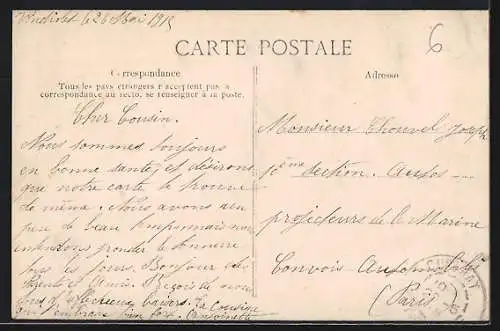 le 26 Mai 1915
6
CARTE POSTALE
Correspondance
Tous les pays étrangers n'acceptent pas la
correspondance au recto, se renseigner à la poste.
Adresse
Cher Cousin.
Nous sommes toujours
en bonne santé, et désirons
que notre carte te trouve
de même. Nous avons un
peu de beau temps mais nous
entendons gronder le tonnerre
tous les jours. Bonjour des
Parents et amis. Reçois de nous
tous de affectueux baisers. Ta Cousine
qui t'embrasse bien fort. Antoinette
Monsieur Thouvel Joseph
1ème section. Autos-
projecteurs de la Marine
Convois Automobiles
(Paris)